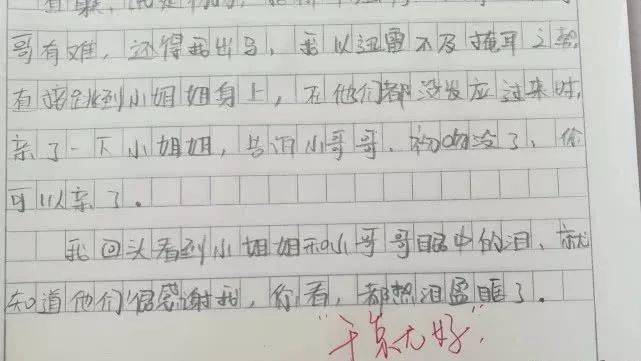 哥有难，还得我出马，我以迅雷不及掩耳之势
直接跳到小姐姐身上，在他们都没发应过来时，
亲了一下小姐姐，告诉小哥哥，初吻没了，你
可以亲了。
我回头看到小姐姐和小哥哥眼中的泪，就
知道他们很感谢我，你看，都热泪盈眶了。